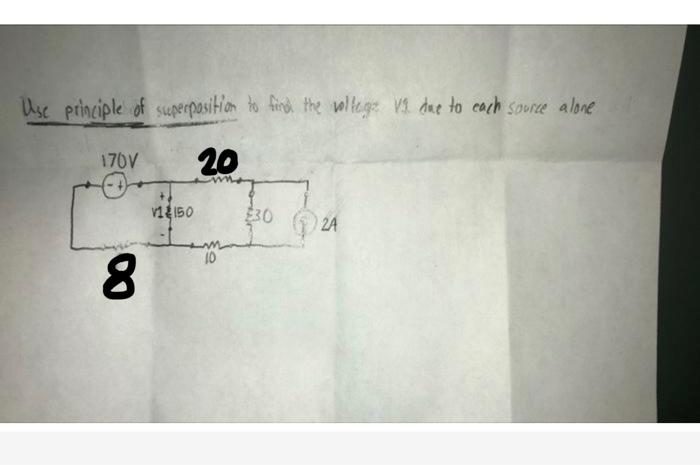 Use principle of superposition to find the voltage V1 due to each source alone
170V
20
- +
+
V1
150
30
2A
-
10
8